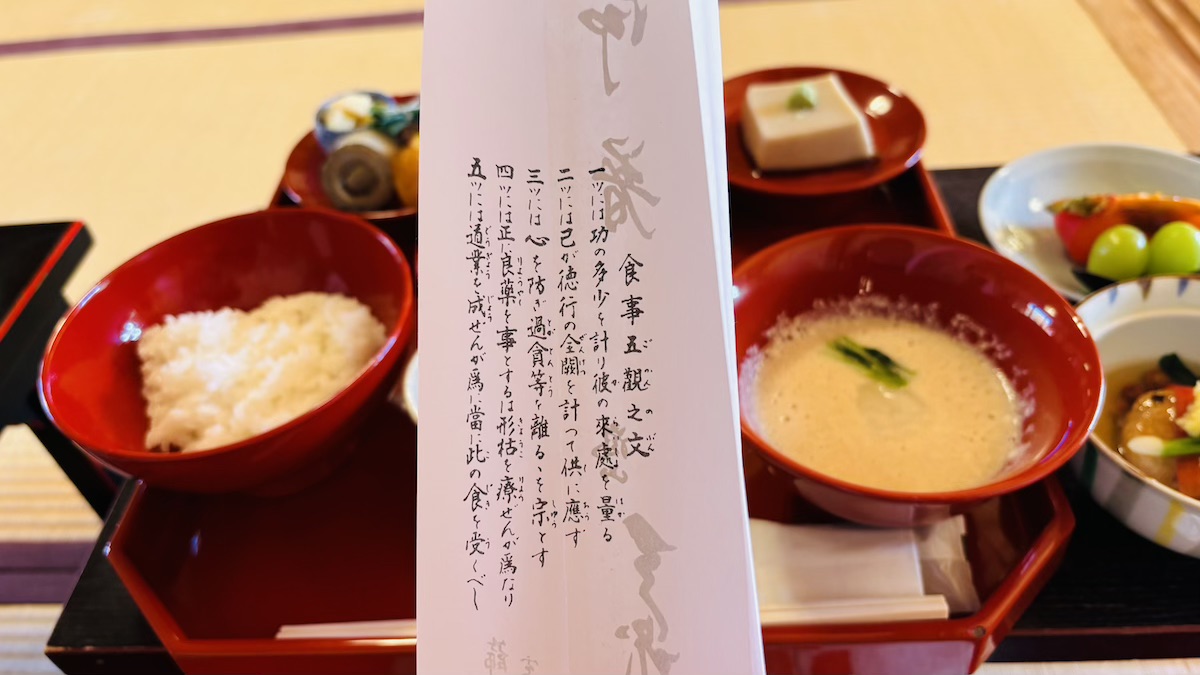 食事五觀之文
一ツには功の多少を計り彼の來處を量る
二ツには己が徳行の全闕を計つて供に應ず
三ツには心を防ぎ過貪等を離るゝを宗とす
四ツには正に良薬を事とするは形枯を療ぜんが為なり
五ツには道業を成ぜんが為に當に此の食を受くべし
御箸